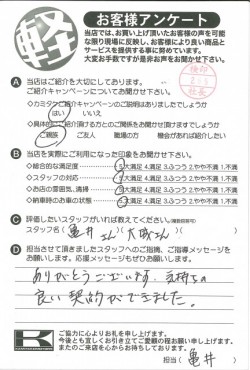 軽
お客様アンケート
当店では、お買い上げ頂いたお客様の声を可能
な限り現場に反映し、お客様により良い商品と
サービスを提供する事に努めています。
大変お手数ですが是非お声をお聞かせ下さい。
A 当店はご紹介を大切にしております。
ご紹介キャンペーンについてお聞かせ下さい。
検印
社長
◇カミタケご紹介キャンペーンの説明はありましたでしょうか
はい いいえ
◇具体的なご紹介頂ける方とのご関係をお聞かせ頂けますでしょうか
ご親族 ご友人 職場の方 機会があれば紹介したい
B 当店を実際にご利用になった印象をお聞かせ下さい。
◇総合的な満足度 5.大満足 4.満足 3.ふつう 2.やや不満 1.不満
◇スタッフの対応 5.大満足 4.満足 3.ふつう 2.やや不満 1.不満
◇お店の雰囲気、清掃 5.大満足 4.満足 3.ふつう 2.やや不満 1.不満
◇納車時のお車の状態 5.大満足 4.満足 3.ふつう 2.やや不満 1.不満
C 評価したいスタッフがいれば教えてください。(複数回答可)
スタッフ名( 亀井さん )( 大城さん )
D 担当させて頂きましたスタッフへのご指摘、ご指導メッセージを
お願いします。応援メッセージもぜひお願いします。
ありがとうございます。気持ちの
良い契約ができました。
K
ご協力に心よりお礼を申し上げます。
今後とも宜しくお引き立てご愛顧の程お願い申し上げます。
またのご来店を心からお待ちしております。
担当( 亀井 )